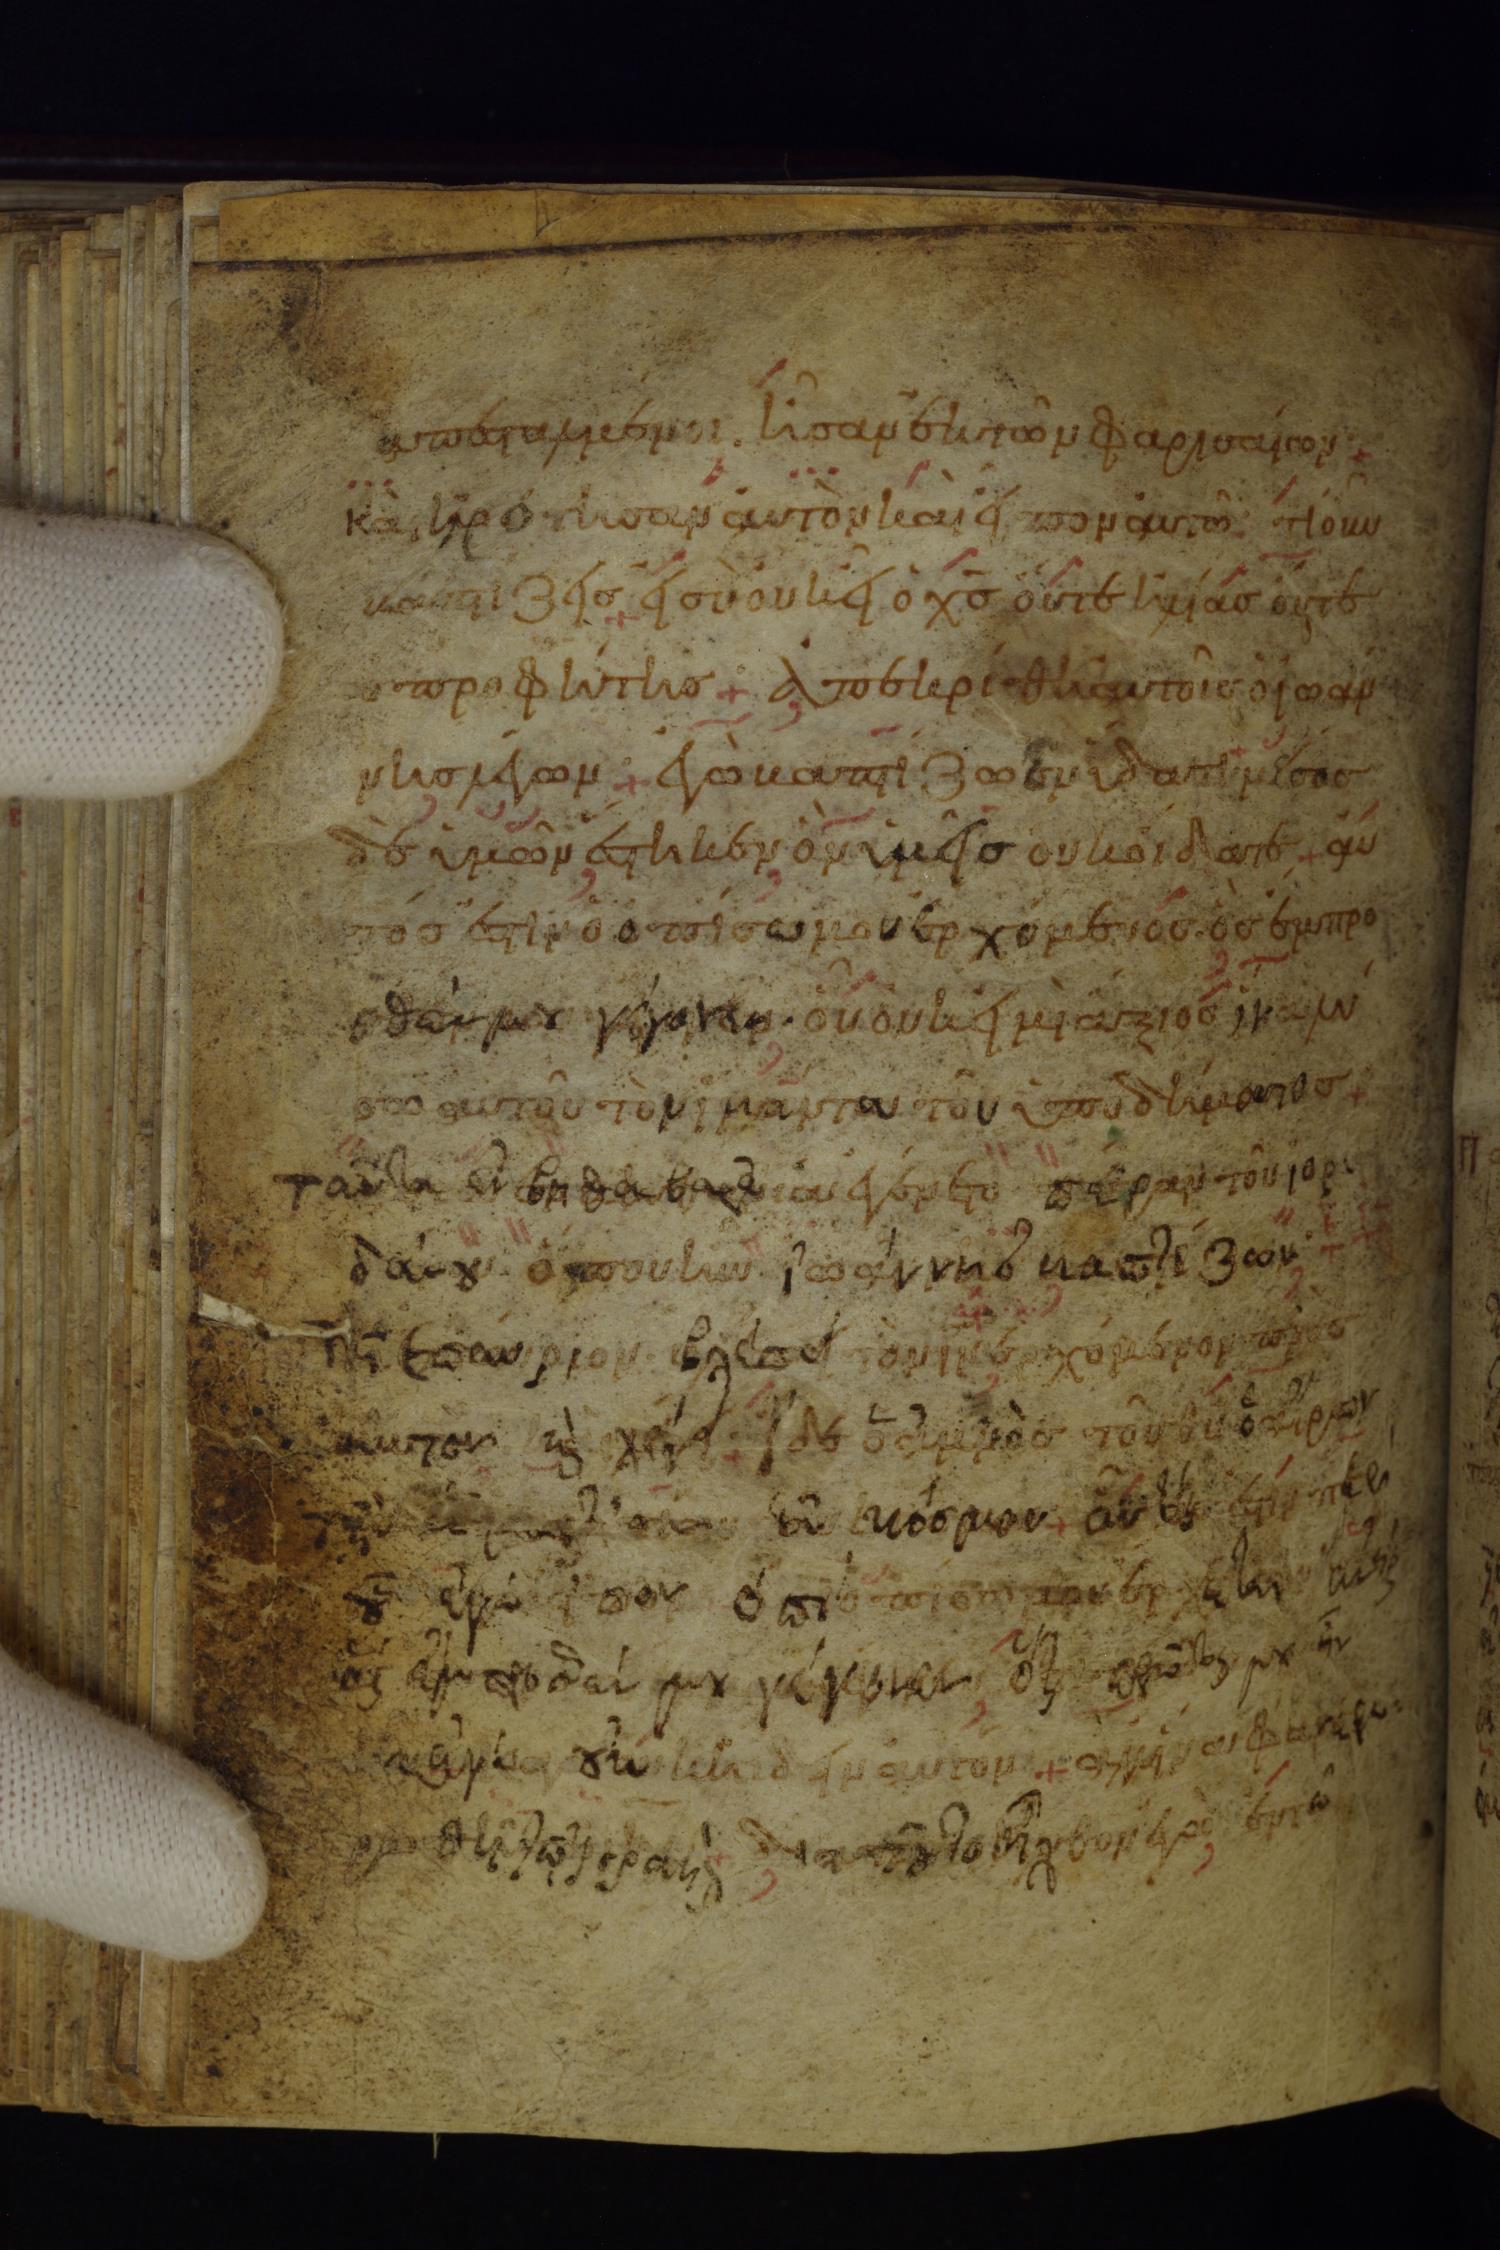 απεσταλμένοι. ἦσαν ἐκ τῶν φαρισαίων +
Καὶ ἠρώτησαν αὐτὸν καὶ εἶπον αὐτῶ· τί οὖν
βαπτίζεις + εἰ σὺ οὐκ εἶ ὁ χς οὔτε ἠλίας οὔτε
ὁ προφήτης + Ἀπεκρίθη αὐτοῖς ὁ ἰωάν
νης λέγων + ἐγὼ βαπτίζω ἐν ὕδατι μέσος
δὲ ὑμῶν ἕστηκεν ὃν ὑμεῖς οὐκ οἴδατε + αὐ
τός ἐστιν ὁ ὀπίσω μου ἐρχόμενος. ὃς ἔμπρο
σθέν μου γέγονεν. οὗ οὐκ εἰμὶ ἄξιος ἵνα λύ
σω αὐτοῦ τὸν ἱμάντα τοῦ ὑποδήματος +
ταῦτα ἐν ἐγένετο πέραν τοῦ ἰορ
δάνου ὅπου ἦν Ἰωάννης βαπτίζων
Τῆ ἐπαύριον βλέπει τὸν ἰν ἐρχόμενον πρὸς
αὐτὸν καὶ λέγει + ἴδε ὁ ἀμνὸς τοῦ θυ ὁ αἴρων
τὴν ἁμαρτίαν τοῦ κόσμου + οὗτός ἐστιν περὶ
οὗ ἐγὼ εἶπον ὀπίσω μου ἔρχεται ἀνὴρ
ὃς ἔμπροσθέν μου γέγονεν ὅτι πρῶτός μου ἦν
κἀγὼ οὐκ ἤδειν αὐτὸν + ἀλλ' ἵνα φανερω
θῆ τῶ ἰσραὴλ διὰ τοῦτο ἦλθον ἐγὼ ἐν τῶ